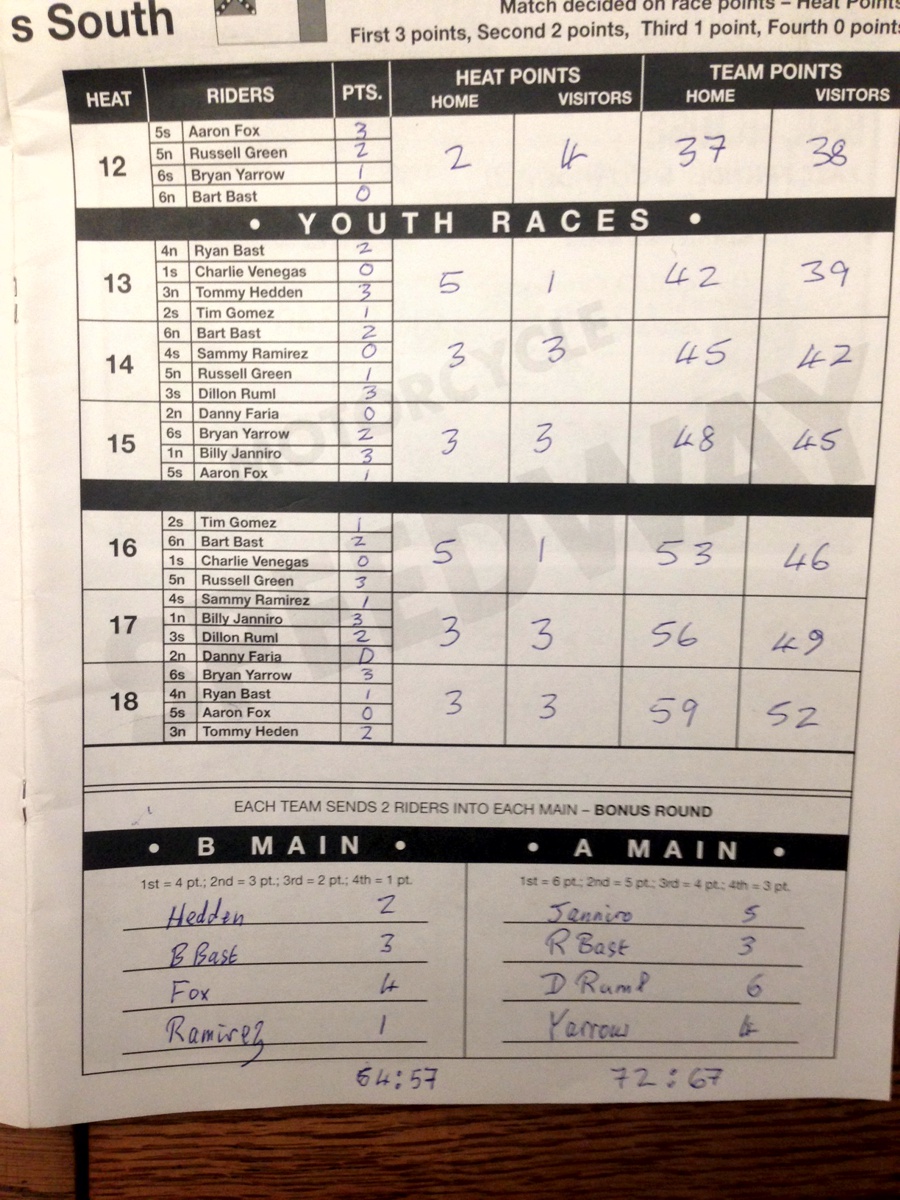 s South
Match decided on race points – Heat Points
First 3 points, Second 2 points, Third 1 point, Fourth 0 points
HEAT RIDERS PTS. HEAT POINTS TEAM POINTS
HOME VISITORS HOME VISITORS
12 2 4 37 38
5s Aaron Fox 3
5n Russell Green 2
6s Bryan Yarrow 1
6n Bart Bast 0
• YOUTH RACES •
13 5 1 42 39
4n Ryan Bast 2
1s Charlie Venegas 0
3n Tommy Hedden 3
2s Tim Gomez 1
14 3 3 45 42
6n Bart Bast 2
4s Sammy Ramirez 0
5n Russell Green 1
3s Dillon Ruml 3
15 3 3 48 45
2n Danny Faria 0
6s Bryan Yarrow 2
1n Billy Janniro 3
5s Aaron Fox 1
16 5 1 53 46
2s Tim Gomez 1
6n Bart Bast 2
1s Charlie Venegas 0
5n Russell Green 3
17 3 3 56 49
4s Sammy Ramirez 1
1n Billy Janniro 3
3s Dillon Ruml 2
2n Danny Faria D
18 3 3 59 52
6s Bryan Yarrow 3
4n Ryan Bast 1
5s Aaron Fox 0
3n Tommy Heden 2
MOTORCYCLE
EEDWAY
EACH TEAM SENDS 2 RIDERS INTO EACH MAIN – BONUS ROUND
• B MAIN •
1st = 4 pt.; 2nd = 3 pt.; 3rd = 2 pt.; 4th = 1 pt.
Hedden 2
B Bast 3
Fox 4
Ramirez 1
64:57
• A MAIN •
1st = 6 pt.; 2nd = 5 pt.; 3rd = 4 pt.; 4th = 3 pt.
Janniro 5
R Bast 3
D Ruml 6
Yarrow 4
72:67